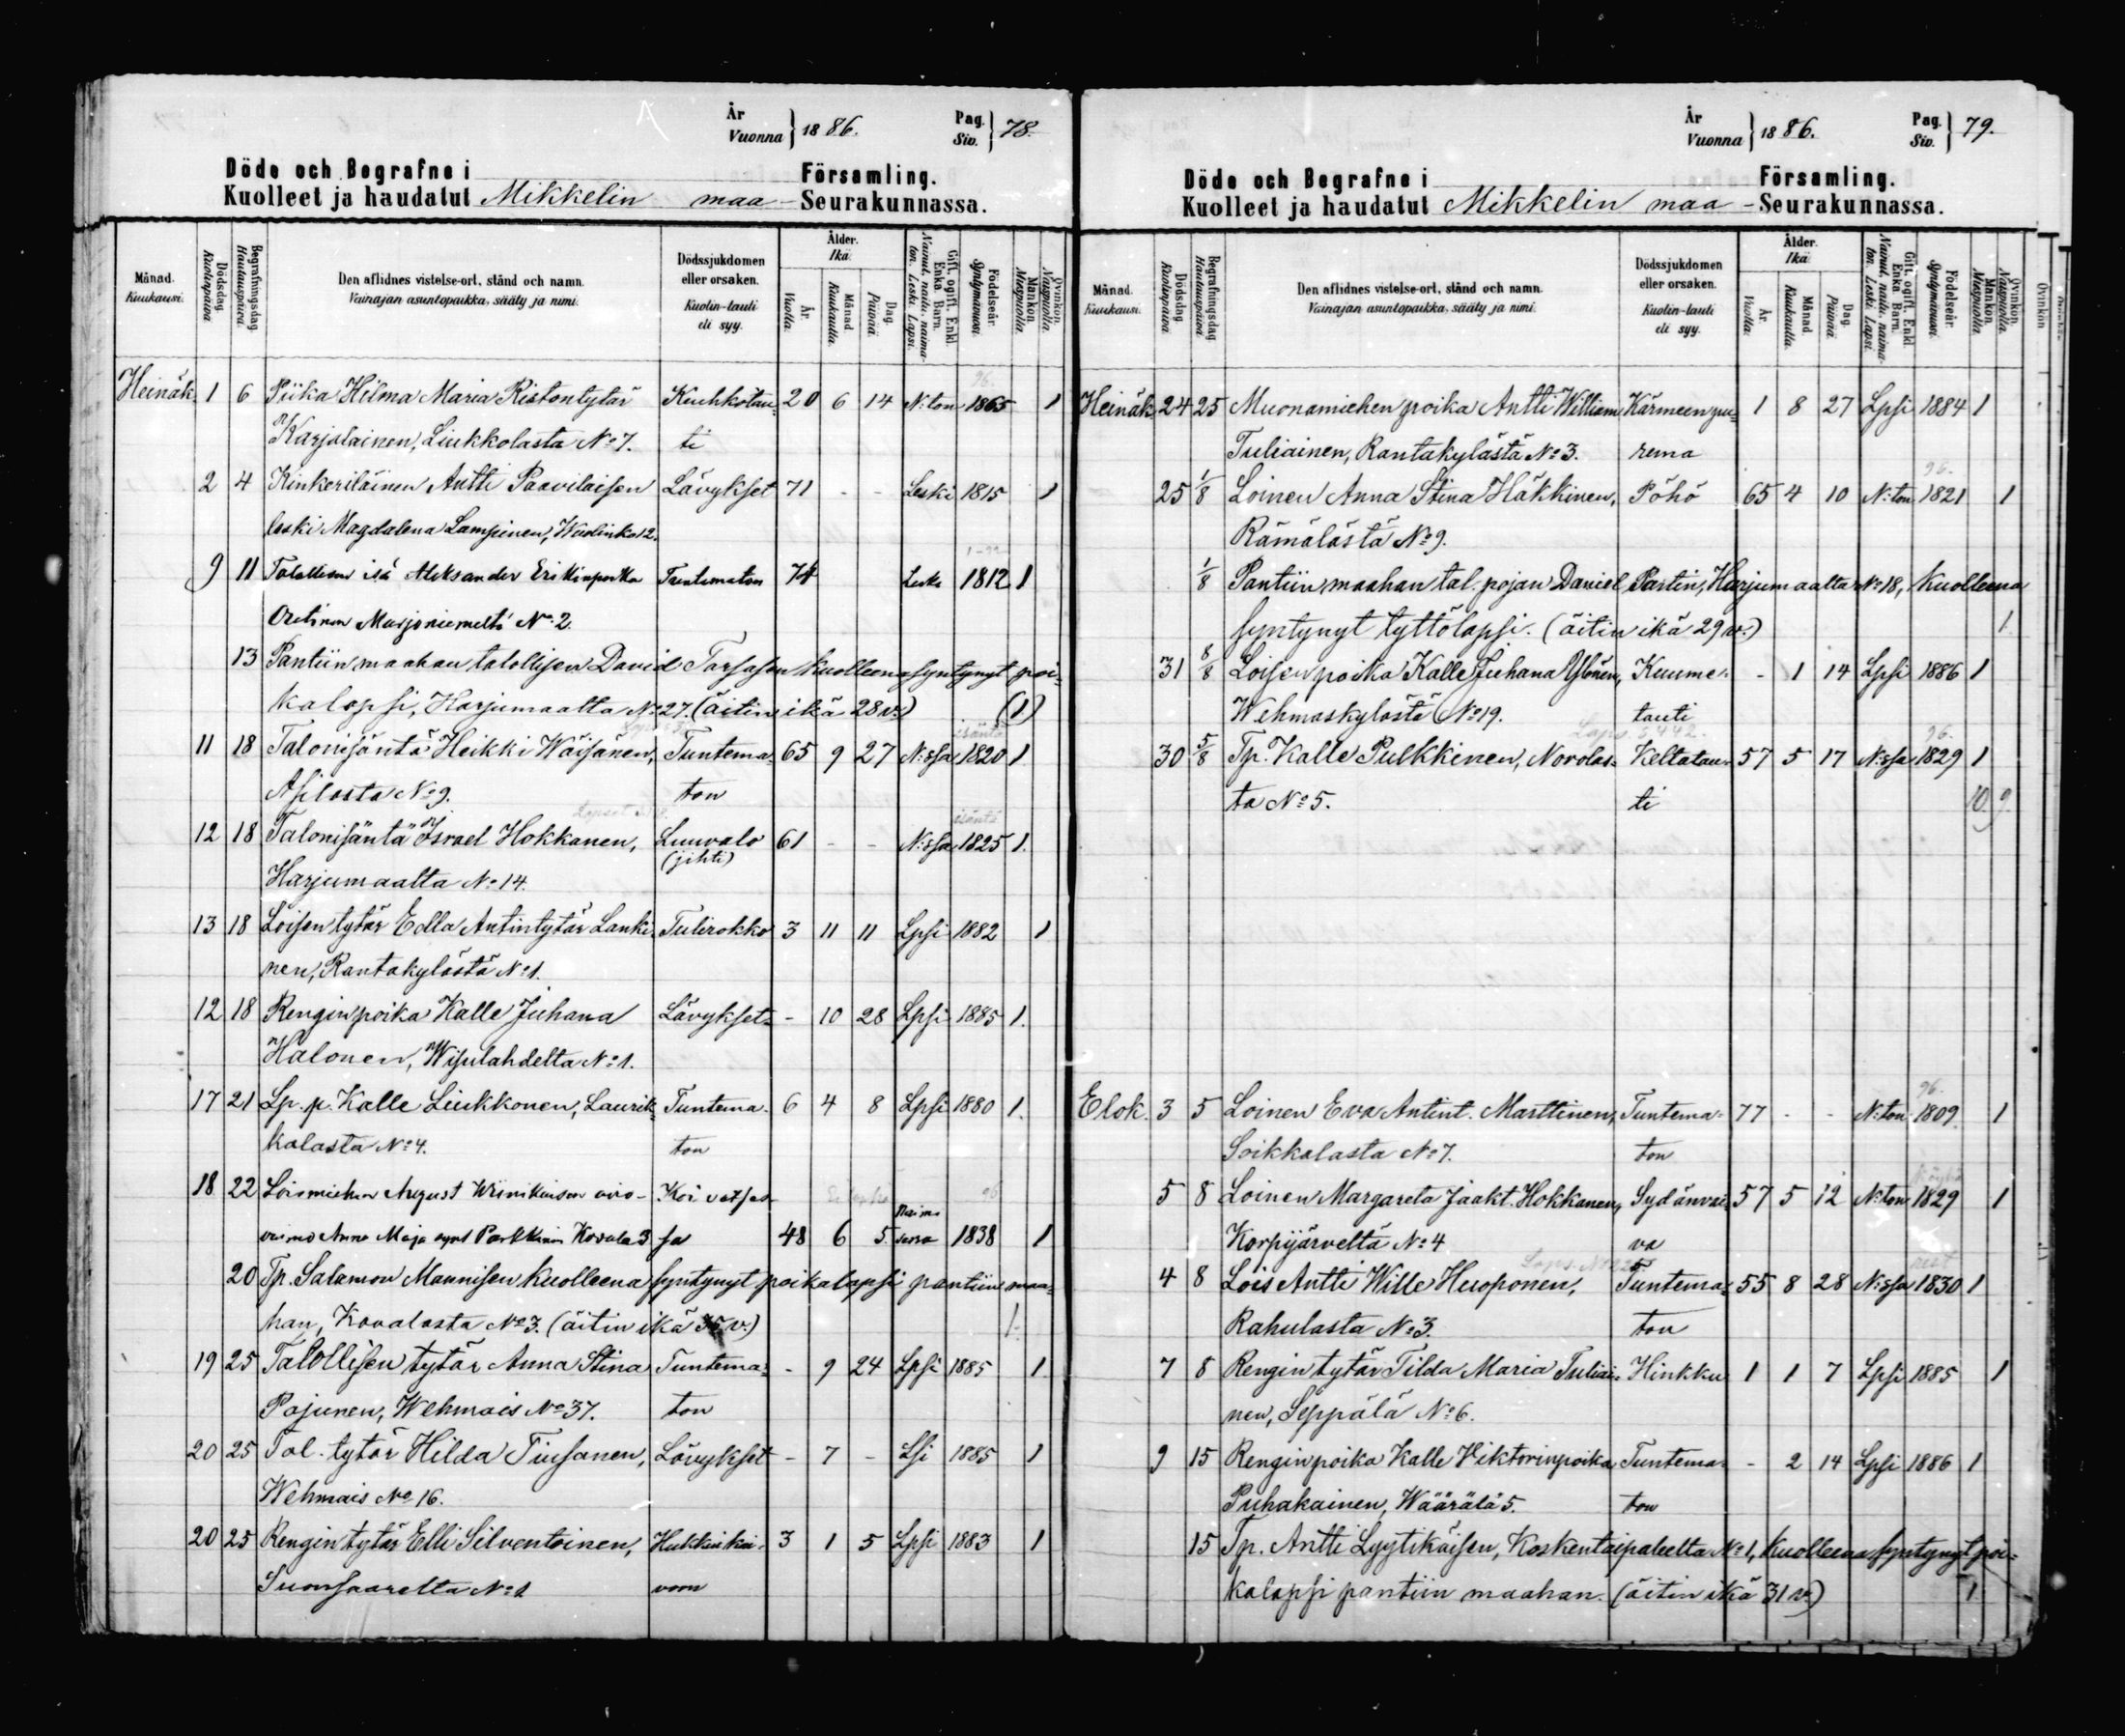 År
Vuonna } 1886.
Pag.
Siv. } 78.
Döde och Begrafne i Församling.
Kuolleet ja haudatut Mikkelin maa- Seurakunnassa.
Månad. Kuukausi.
Dödsdag. Kuolinpäivä
Begrafningsdag. Hautauspäivä.
Den aflidnes vistelse-ort, stånd och namn.
Vainajan asuntopaikka, sääty ja nimi.
Dödssjukdomen eller orsaken.
Kuolin-tauti eli syy.
Ålder. Ikä.
År. Vuotta.
Månad. Kuukautta.
Dag. Päivää.
Gift, ogift. Enkl. Enka. Barn.
Nainut, naitu, naimaton. Leski. Lapsi.
Födelseår. Syntymävuosi.
Mankön. Miespuolia.
Qvinkön. Naispuolia.
Heinäk. 1 6 Piika Hilma Maria Ristontytär Keuhkotau- 20 6 14 N:ton 1865 1
Karjalainen, Liukkolasta No 7. ti
2 4 Kinkeriläinen Antti Paavilaisen Lävykset 71 - - Leski 1815 1
leski Magdalena Lampinen, Wuolinko 12.
9 11 Talollisen isä Aleksander Erikinpoika Tuntematon 74 Leski 1812 1
Marjoniemeltä No 2.
13 Pantiin maahan talollisen David Tarsasen kuolleena syntynyt poi-
kalapsi, Harjumaalta No 27. (äitin ikä 28 v.) (1)
11 18 Talonisäntä Heikki Wäisänen, Tuntema- 65 9 27 N:ssa 1820 1
Asilasta No 9. ton
12 18 Talonisäntä Israel Hokkanen, Luuvalo 61 - - N:ssa 1825 1.
(jihti)
Harjumaalta No 14.
13 18 Loisen tytär Edla Antintytär Lanki- Tulirokko 3 11 11 Lpsi 1882 1
nen, Rantakylästä No 1.
12 18 Rengin poika Kalle Juhana Lävykset - 10 28 Lpsi 1885 1.
Halonen, Wisulahdelta No 1.
17 21 Lp. p. Kalle Liukkonen, Laurik- Tuntema- 6 4 8 Lpsi 1880 1.
kalasta No 4. ton
18 22 Loismiehen August avio-
vaimo Anna Maja synt Parkkinen Kovala 3 48 6 5 1838 1
20 Tp. Salamon Mannisen kuolleena syntynyt poikalapsi pantiin maa-
han, Kovalasta No 3. (äitin ikä 35 v.) 1.
19 25 Talollisen tytär Anna Stina Tuntema- - 9 24 Lpsi 1885 1
Pajunen, Wehmais No 37. ton
20 25 Tal. tytär Hilda Tiusanen, Lävykset - 7 - Lsi 1885 1
Wehmais No 16.
20 25 Rengin tytär Elli Silventoinen, Hukkui kai- 3 1 5 Lpsi 1883 1
Suonsaarelta No 1 voon
År
Vuonna } 1886.
Pag.
Siv. } 79.
Döde och Begrafne i Församling.
Kuolleet ja haudatut Mikkelin maa- Seurakunnassa.
Månad. Kuukausi.
Dödsdag. Kuolinpäivä
Begrafningsdag. Hautauspäivä.
Den aflidnes vistelse-ort, stånd och namn.
Vainajan asuntopaikka, sääty ja nimi.
Dödssjukdomen eller orsaken.
Kuolin-tauti eli syy.
Ålder. Ikä.
År. Vuotta.
Månad. Kuukautta.
Dag. Päivää.
Gift, ogift. Enkl. Enka. Barn.
Nainut, naitu, naimaton. Leski. Lapsi.
Födelseår. Syntymävuosi.
Mankön. Miespuolia.
Qvinkön. Naispuolia.
Heinäk. 24 25 Muonamiehen poika Antti William Kärmeen pu- 1 8 27 Lpsi 1884 1
Tuliainen, Rantakylästä No 3. rema
25 1/8 Loinen Anna Stina Häkkinen, Pöhö 65 4 10 N:ton 1821 1
Rämälästä No 9.
1/8 Pantiin maahan tal. pojan Daniel Partin, Harjumaalta No 18, kuolleena
syntynyt tyttölapsi. (äitin ikä 29 v.) 1
31 8/8 Loisen poika Kalle Juhana Ylönen, Kuume- - 1 14 Lpsi 1886 1
Wehmaskylästä No 19. tauti
30 5/8 Tp. Kalle Pulkkinen, Norolas- Keltatau- 57 5 17 N:ssa 1829 1
ta No 5. ti 10 9.
Elok. 3 5 Loinen Eva Antint. Marttinen, Tuntema- 77 - - N:ton 1809 1
Soikkalasta No 7. ton
5 8 Loinen Margareta Jaakt. Hokkanen, Sydänvai- 57 5 12 N:ton 1829 1
Korpijärveltä No 4 va
4 8 Lois Antti Wille Huoponen, Tuntema- 55 8 28 N:ssa 1830 1
Rahulasta No 3. ton
7 8 Rengin tytär Tilda Maria Tuliai- Hinkku 1 1 7 Lpsi 1885 1
nen, Seppälä No 6.
9 15 Rengin poika Kalle Viktorinpoika Tuntema- - 2 14 Lpsi 1886 1
Puhakainen, Wäärälä 5. ton
15 Tp. Antti Lyytikäisen, Koskentaipaleelta No 1, kuolleena syntynyt poi-
kalapsi pantiin maahan. (äitin ikä 31 v.) 1